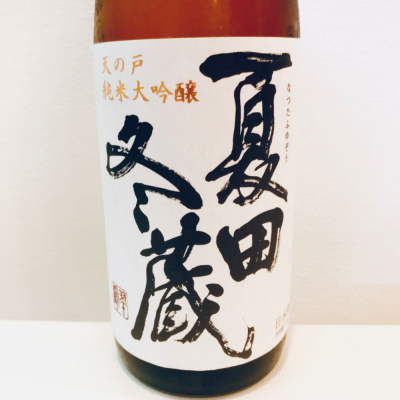 天の戸
純米大吟醸
夏田
冬蔵
なつだふゆぞう